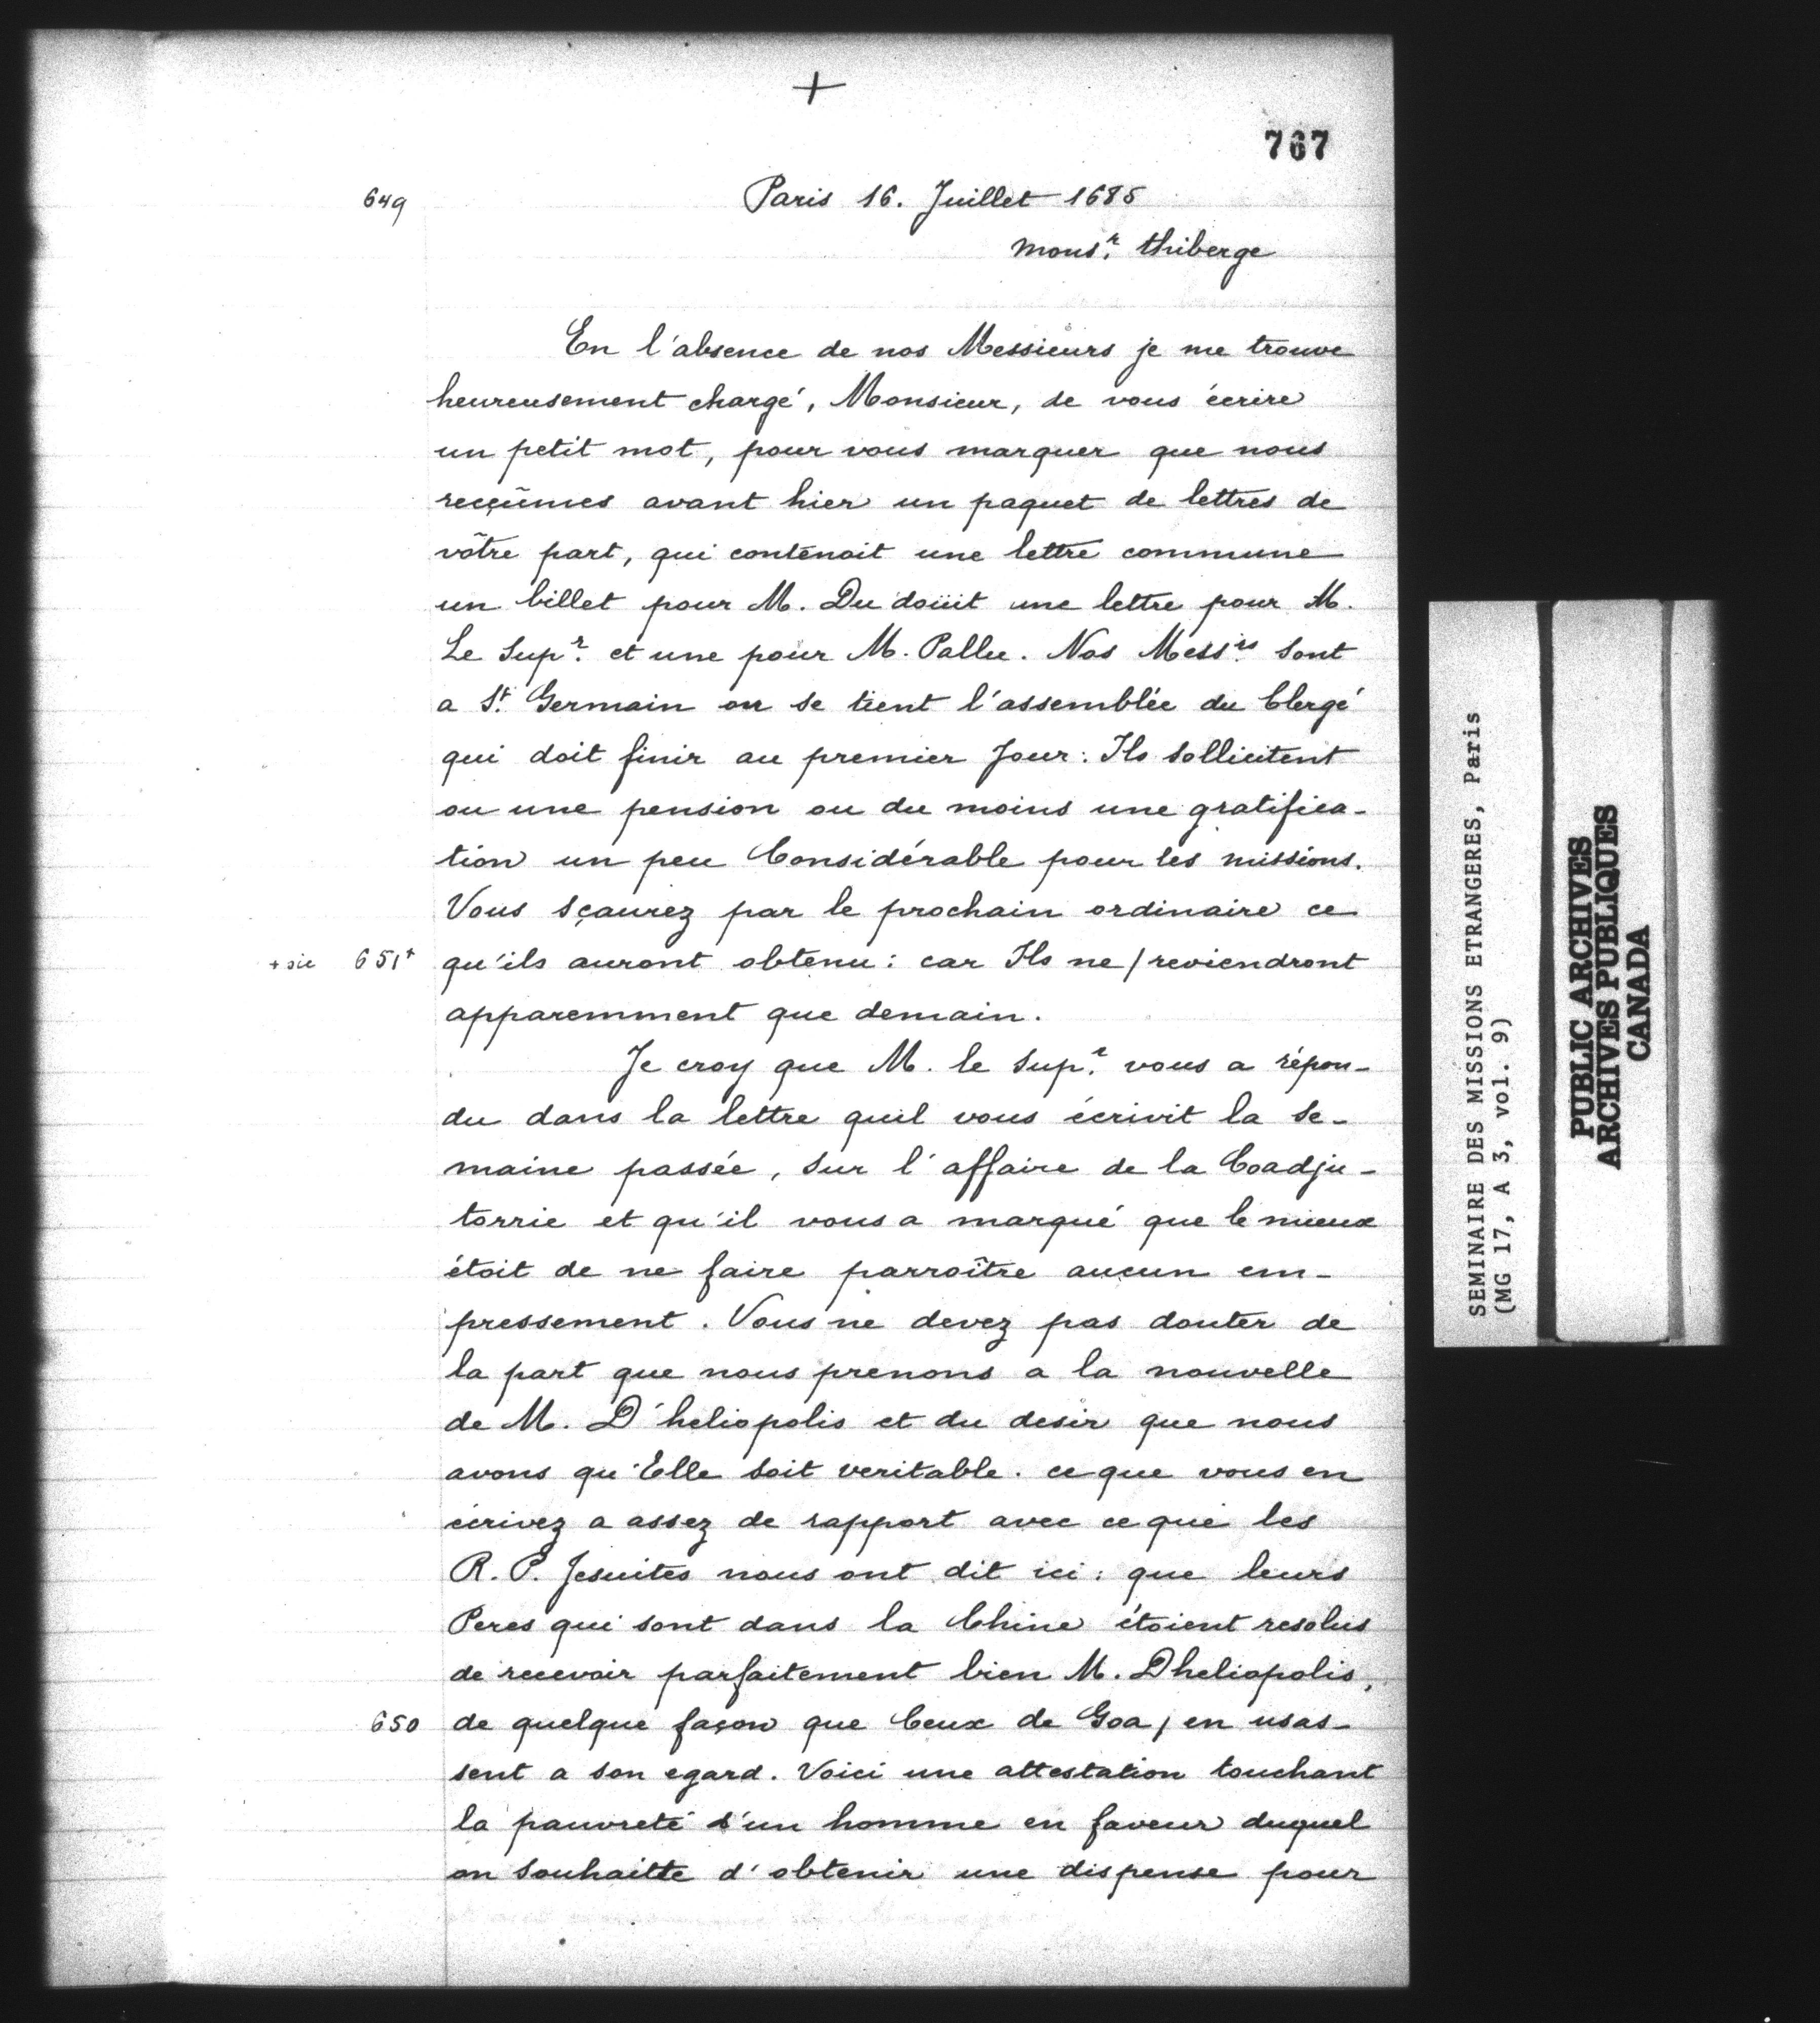 +
767
649 Paris 16. Juillet 1685
Mons.r thiberge
En l'absence de nos Messieurs je me trouve
heureusement chargé, Monsieur, de vous écrire
un petit mot, pour vous marquer que nous
reçûmes avant hier un paquet de lettres de
vôtre part, qui contenoit une lettre commune
un billet pour M. Du doüit une lettre pour M.
Le Sup.r et une pour M. Pallu. Nos Mess.rs sont
a S.t Germain ou se tient l'assemblée du Clergé
qui doit finir au premier Jour: Ils sollicitent
ou une pension ou du moins une gratifica-
tion un peu Considérable pour les missions.
Vous sçaurez par le prochain ordinaire ce
+ sic 651+ qu'ils auront obtenu: car Ils ne / reviendront
apparemment que demain.
Je croy que M. le Sup.r vous a répon-
du dans la lettre quil vous écrivit la se-
maine passée, sur l'affaire de la Coadju-
torrie et qu'il vous a marqué que le mieux
étoit de ne faire parroître aucun em-
pressement. Vous ne devez pas douter de
la part que nous prenons a la nouvelle
de M. D'heliopolis et du desir que nous
avons qu'Elle soit veritable. ce que vous en
écrivez a assez de rapport avec ce que les
R. P. Jesuites nous ont dit ici: que leurs
Peres qui sont dans la Chine étoient resolus
de recevoir parfaitement bien M. Dheliopolis,
650 de quelque façon que Ceux de Goa / en usas-
sent a son egard. Voici une attestation touchant
la pauvreté d'un homme en faveur duquel
on souhaitte d'obtenir une dispense pour
SEMINAIRE DES MISSIONS ETRANGERES, Paris
(MG 17, A 3, vol. 9)
PUBLIC ARCHIVES
ARCHIVES PUBLIQUES
CANADA